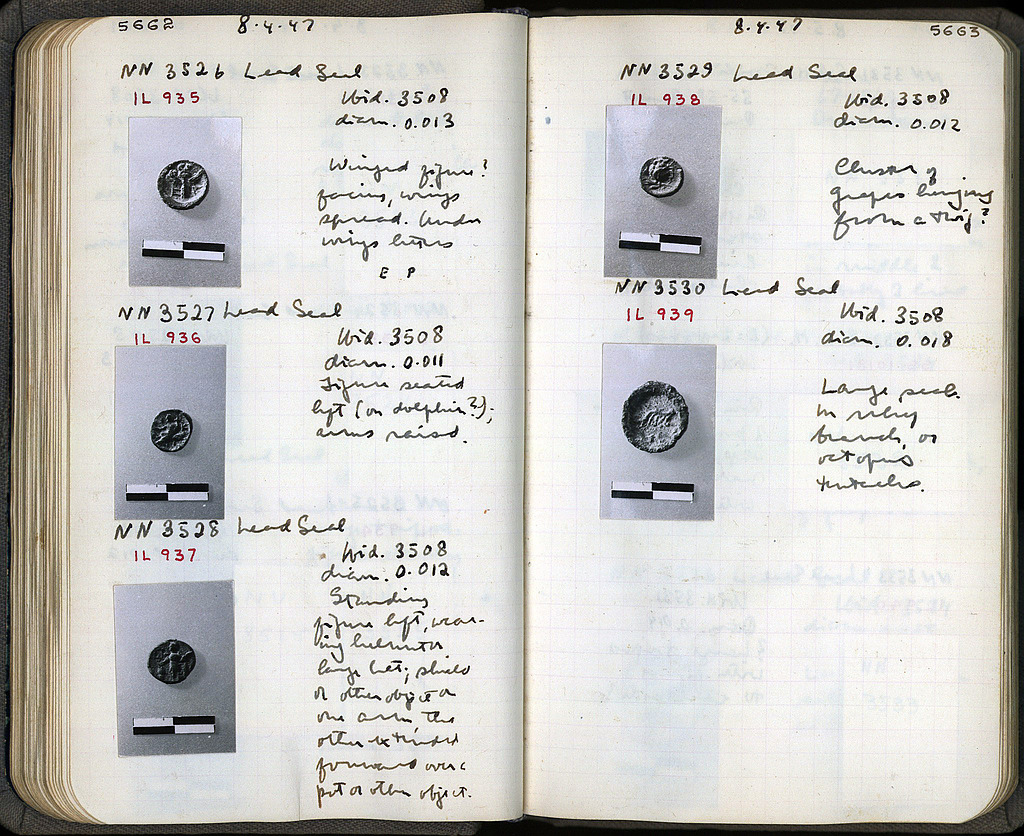 5662 8·4·47
NN 3526 Lead Seal
IL 935
Ibid. 3508
diam. 0.013
Winged figure?
facing, wings
spread. Under
wings letters
E P
NN 3527 Lead Seal
IL 936
Ibid. 3508
diam. 0.011
Figure seated
left (on dolphin?);
arms raised.
NN 3528 Lead Seal
IL 937
Ibid. 3508
diam. 0.012
Standing
figure left, wear-
ing helmet or
large hat; shield
or other object on
one arm the
other extended
forward over a
pot or other object.
8·4·47 5663
NN 3529 Lead Seal
IL 938
Ibid. 3508
diam. 0.012
Cluster of
grapes hanging
from a twig?
NN 3530 Lead Seal
IL 939
Ibid. 3508
diam. 0.018
Large seal.
In relief
branch, or
octopus
tentacles.